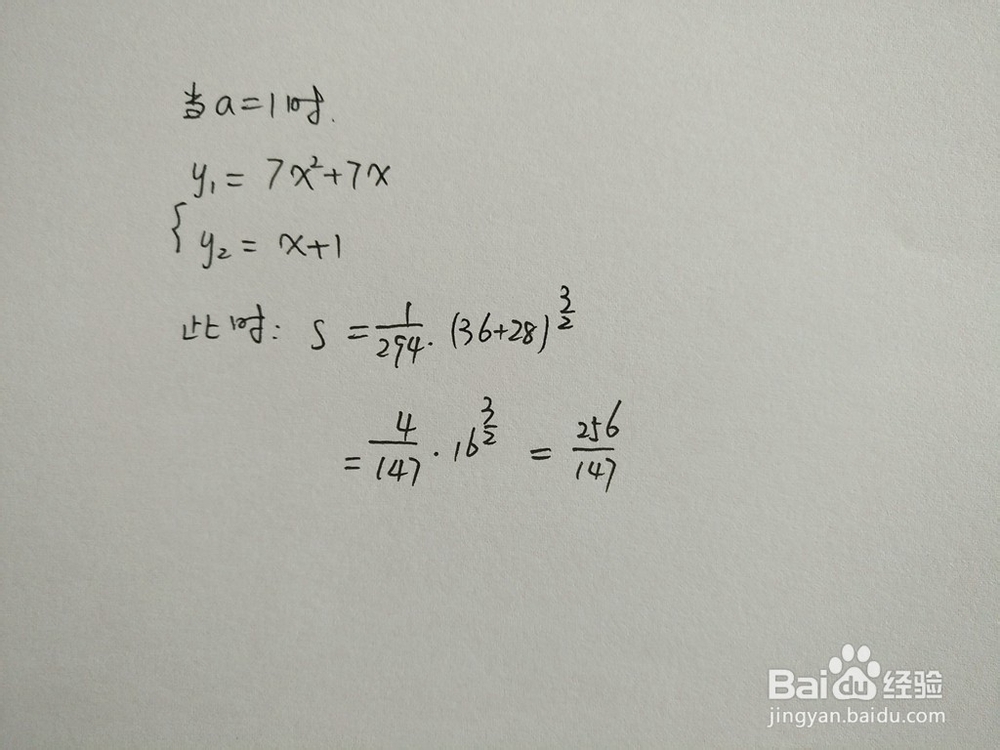 当a=1时.
y₁= 7x²+7x
{ y₂= x+1
此时: S = 1/294. (36+28)^(3/2)
= 4/147 · 16^(3/2) = 256/147
Baidu经验
jingyan.baidu.com